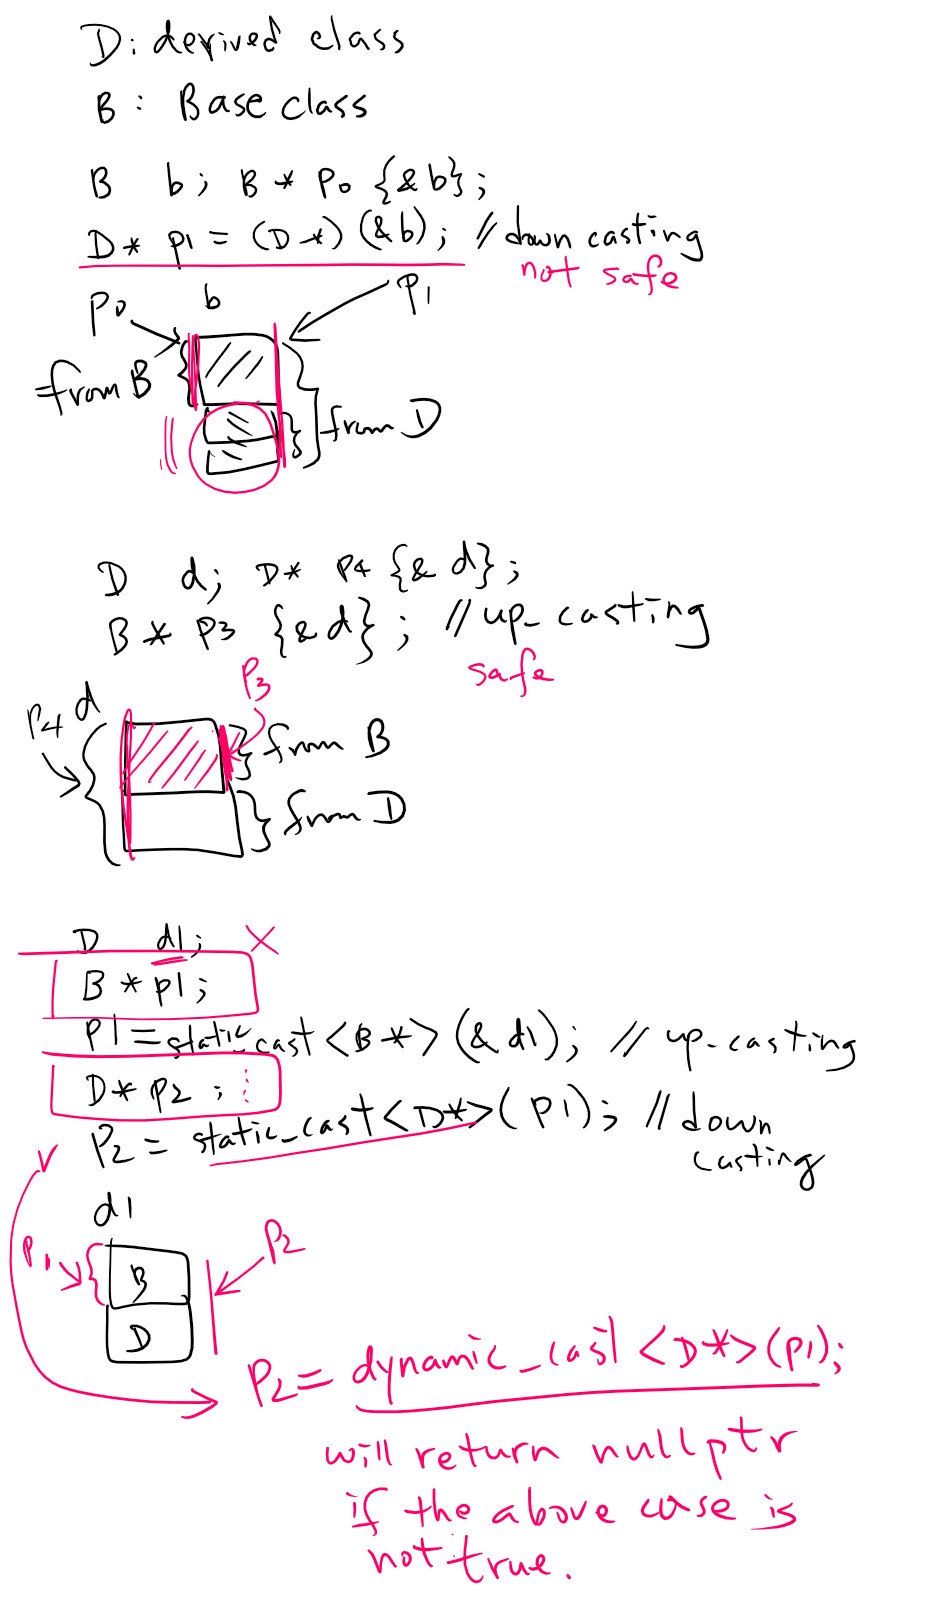 D: derived class
B: Base class
B b; B* p0 {&b};
D* p1 = (D*) (&b); // down casting
not safe
p0 b p1
from B
from D
D d; D* p4 {&d};
B* p3 {&d}; // up-casting
safe
p3
p4 d
from B
from D
D d1; X
B* p1;
p1 = static_cast<B*>(&d1); // up-casting
D* p2;
p2 = static_cast<D*>(p1); // down
casting
d1
p1 p2
B
D
p2 = dynamic_cast<D*>(p1);
will return nullptr
if the above case is
not true.